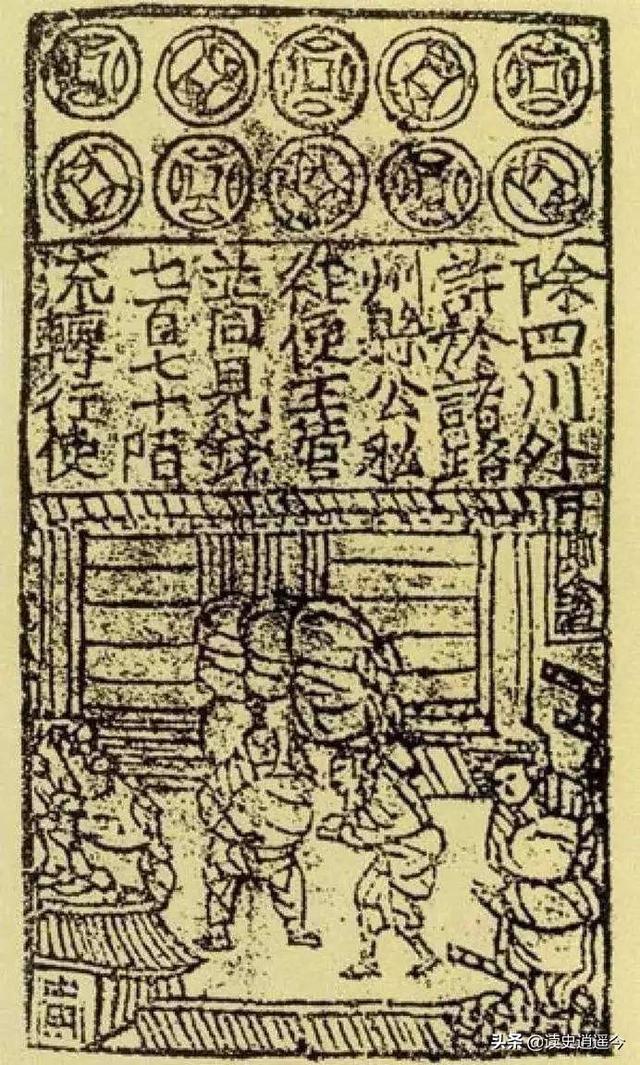 除四川外
許於諸路
州縣公私
從便主管
並同見錢
七百七十陌
流轉行使
头条 @读史逍遥今